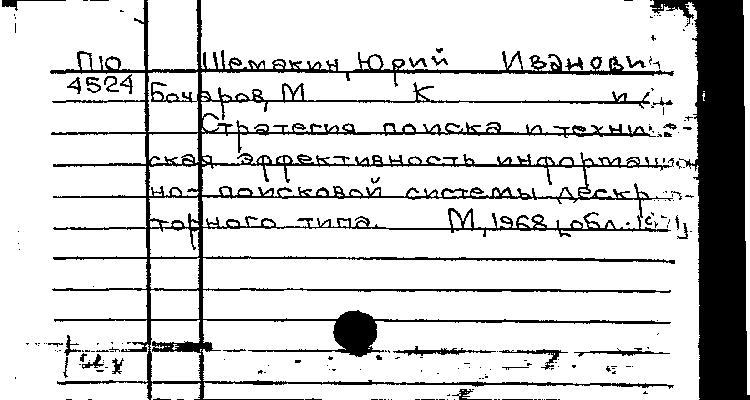 ПЮ Шемакин, Юрий Иванович
4524 Бочаров, М К и
Стратегия поиска и техниче-
ская эффективность информацион
но- поисковой системы дескрип-
торного типа. М., 1968 [обл.: 1971]